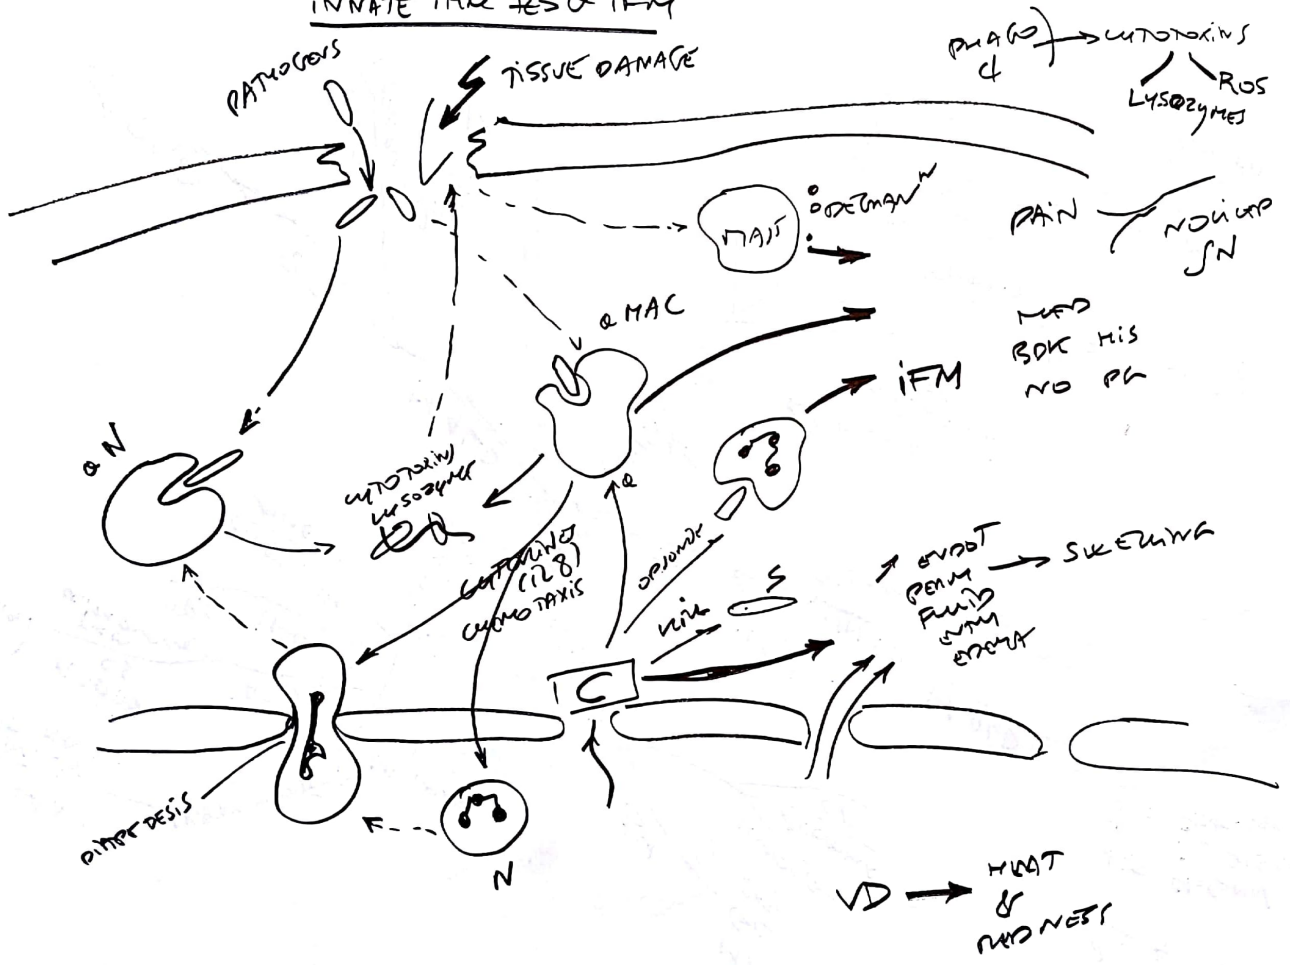 PATHOGENS
TISSUE DAMAGE
PHAGO
CYTOTOXINS
LYSOZYMES
ROS
MAST
DEGRAN
PAIN
a MAC
MED
BDK HIS
NO PG
iFM
a N
CYTOTOXINS
LYSOZYMES
CYTOKINES
(IL8)
CHEMOTAXIS
OPSONIZE
KILL
C
ENDOT
PERM
FLUID
EDEMA
SWELLING
DIAPEDESIS
N
VD
HEAT
&
REDNESS